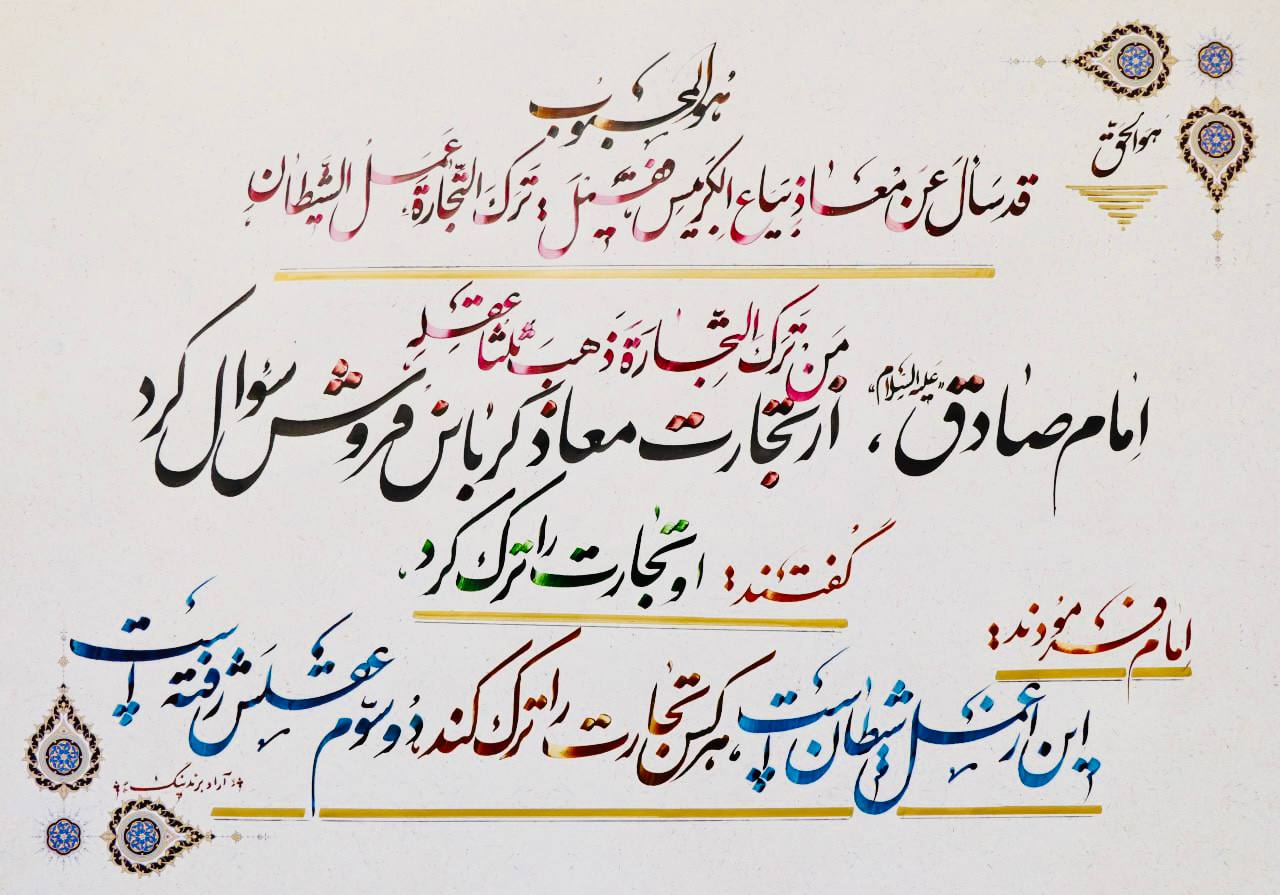 هوالمحبوب
هوالحق
قد سأل عن معاذ بیاع الکرابیس فقیل: ترک التجارة عمل الشیطان
من ترک التجارة ذهب ثلثا عقله
امام صادق «علیه السلام»، از تجارت معاذ کرباس فروش سؤال کرد
گفتند: او تجارت را ترک کرد.
امام فرمودند:
این از عمل شیطان است، هر کس تجارت را ترک کند دو سوّم عقلش رفته است
آراد برندینگ